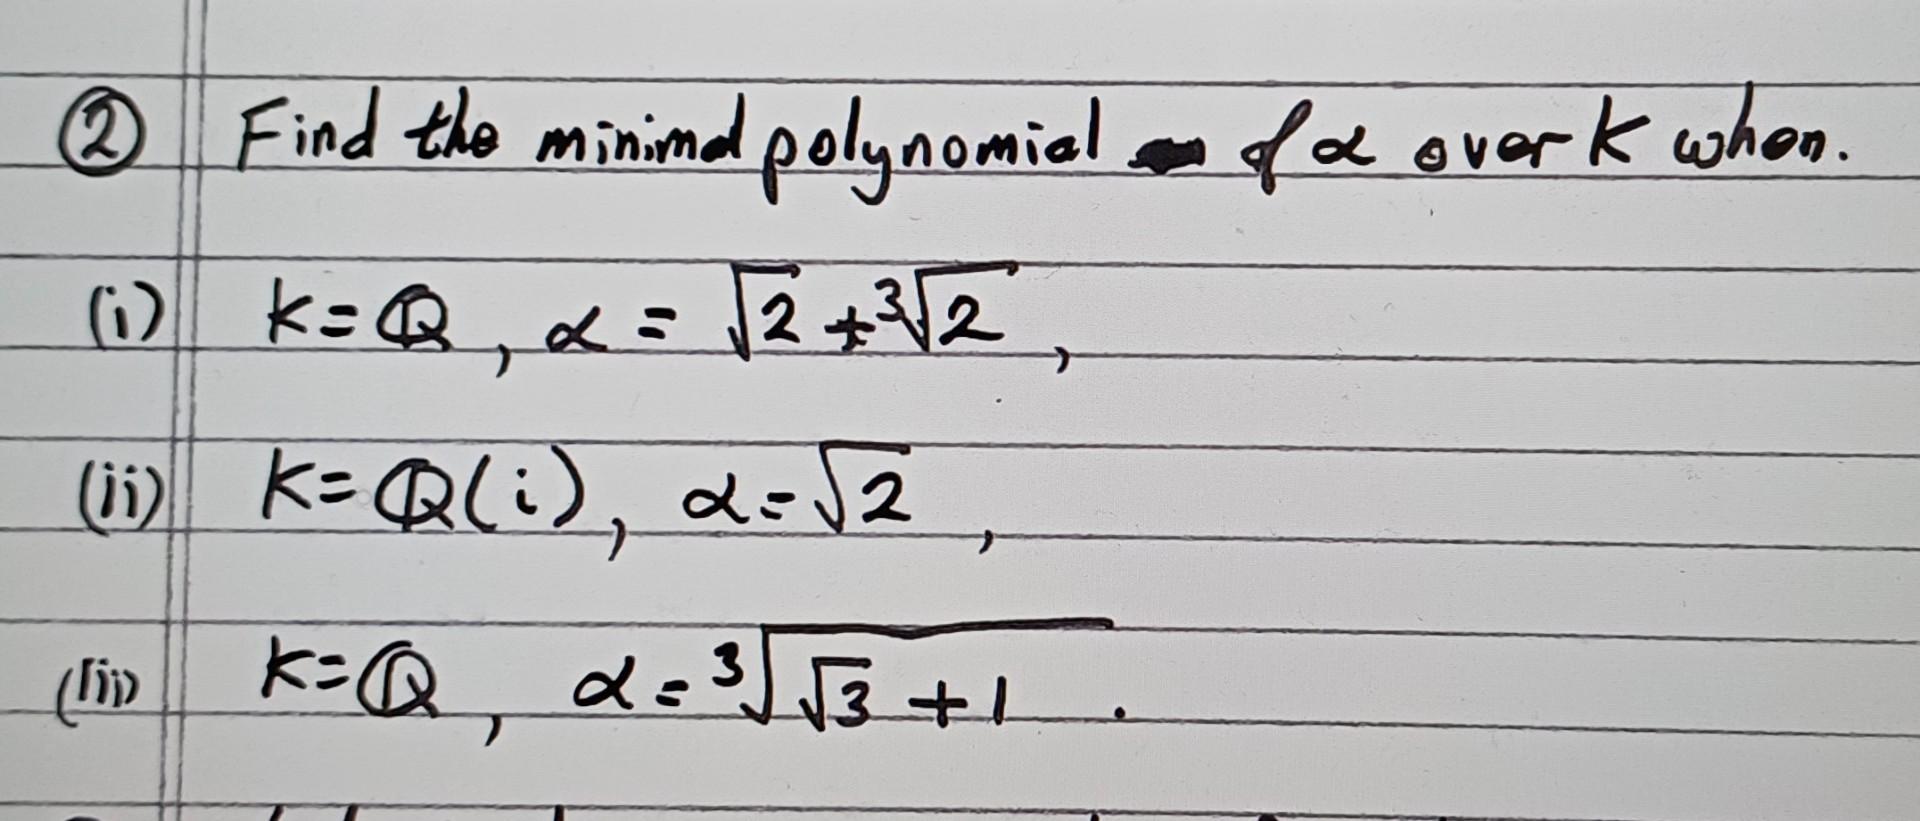 ② Find the minimal polynomial of α over K when.
(i) K = ℚ, α = √2 + ³√2,
(ii) K = ℚ(i), α = √2,
(iii) K = ℚ, α = ³√(√3 + 1).